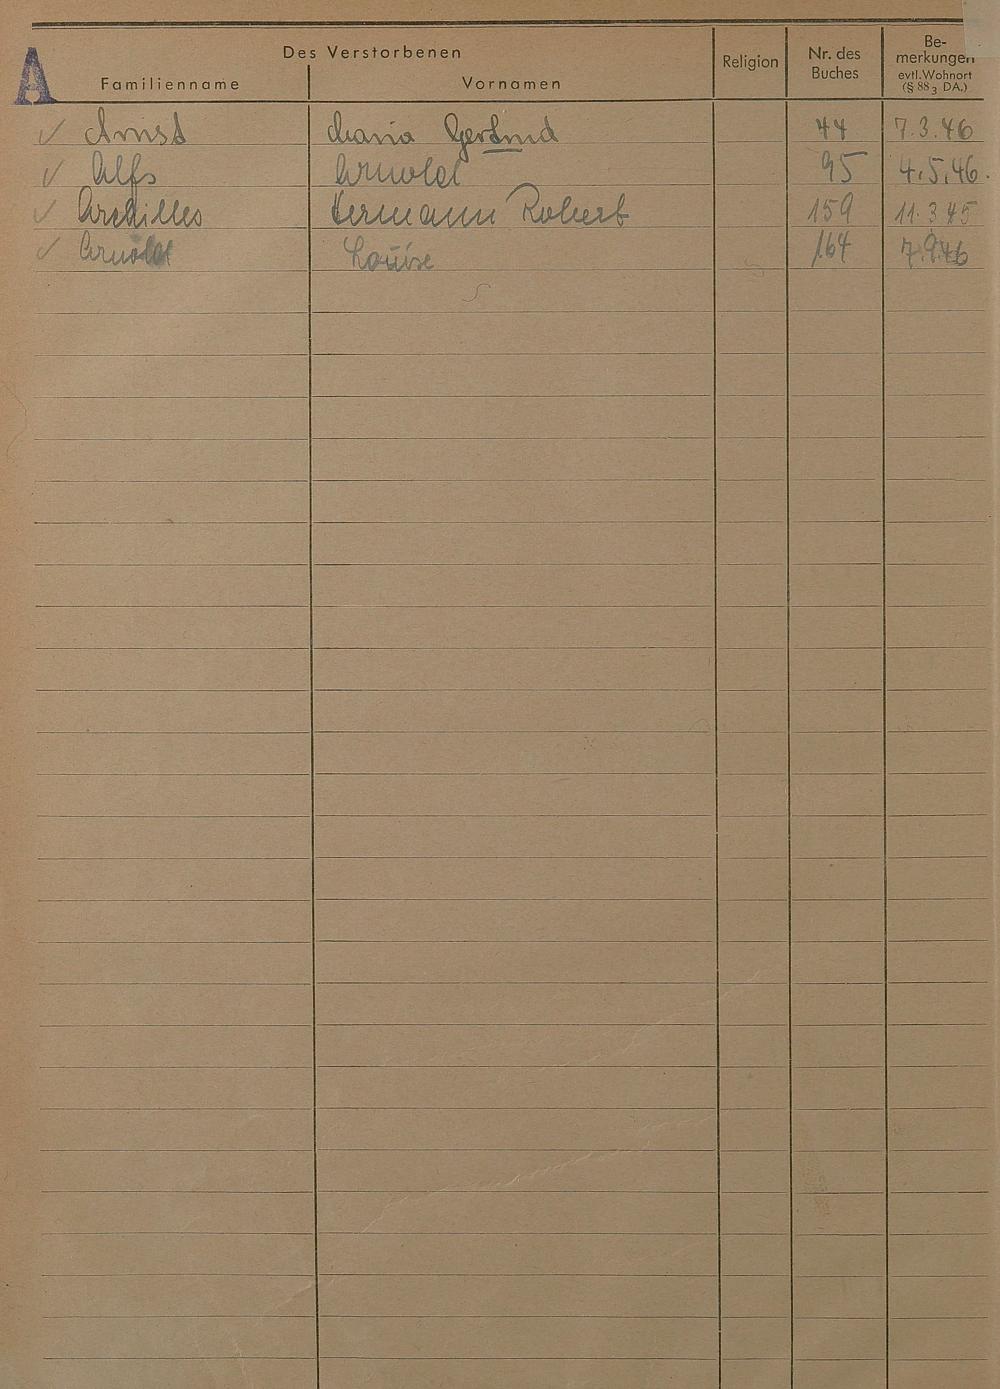 A
Des Verstorbenen
Familienname Vornamen Religion Nr. des Buches Be-merkungen evtl. Wohnort (§ 88 3 DA.)
✓ Arnst Maria Gertrud 44 7.3.46
✓ Alfs Arnold 95 4.5.46.
✓ Archilles Hermann Robert 159 11.3.45
✓ Arnold Louise 164 7.9.46